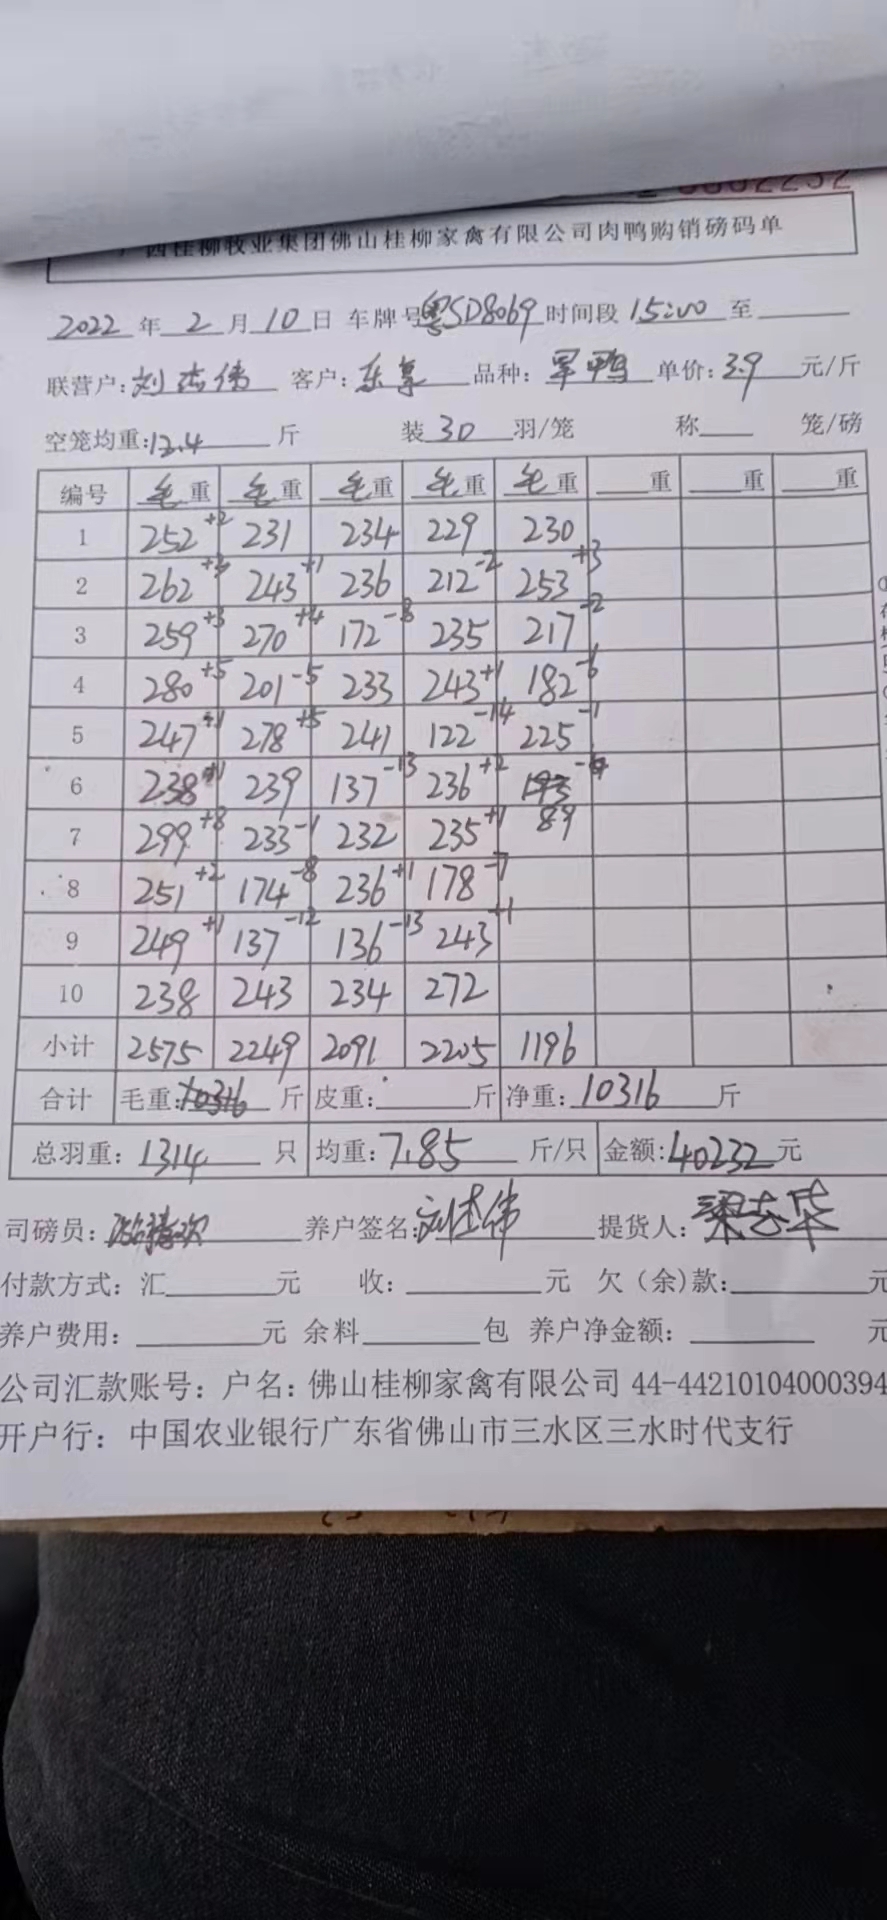 西桂柳牧业集团佛山桂柳家禽有限公司肉鸭购销磅码单
2022年2月10日 车牌号粤SD8069 时间段15:00至
联营户:刘志伟 客户:东 品种:鸭 单价:3.9元/斤
空笼均重:12.4斤 装30羽/笼 称 笼/磅
编号 毛重 毛重 毛重 毛重 毛重 重 重 重
1 252+2 231 234 229 230
2 262+3 243+1 236 212-2 253+3
3 259+3 270+4 172-8 235 217-2
4 280+5 201-5 233 243+1 182-6
5 247+1 278+5 241 122-14 225-1
6 238+1 239 137-13 236+2
7 299+8 233-1 232 235+1 89
8 251+2 174-8 236+1 178-7
9 249+1 137-12 136-13 243+1
10 238 243 234 272
小计 2575 2249 2091 2205 1196
合计 毛重:10316斤 皮重: 斤 净重:10316斤
总羽重:1314只 均重:7.85斤/只 金额:40232元
司磅员: 养户签名:刘志伟 提货人:梁志华
付款方式:汇 元 收: 元 欠(余)款: 元
养户费用: 元 余料 包 养户净金额: 元
公司汇款账号:户名:佛山桂柳家禽有限公司 44-44210104000394
开户行:中国农业银行广东省佛山市三水区三水时代支行